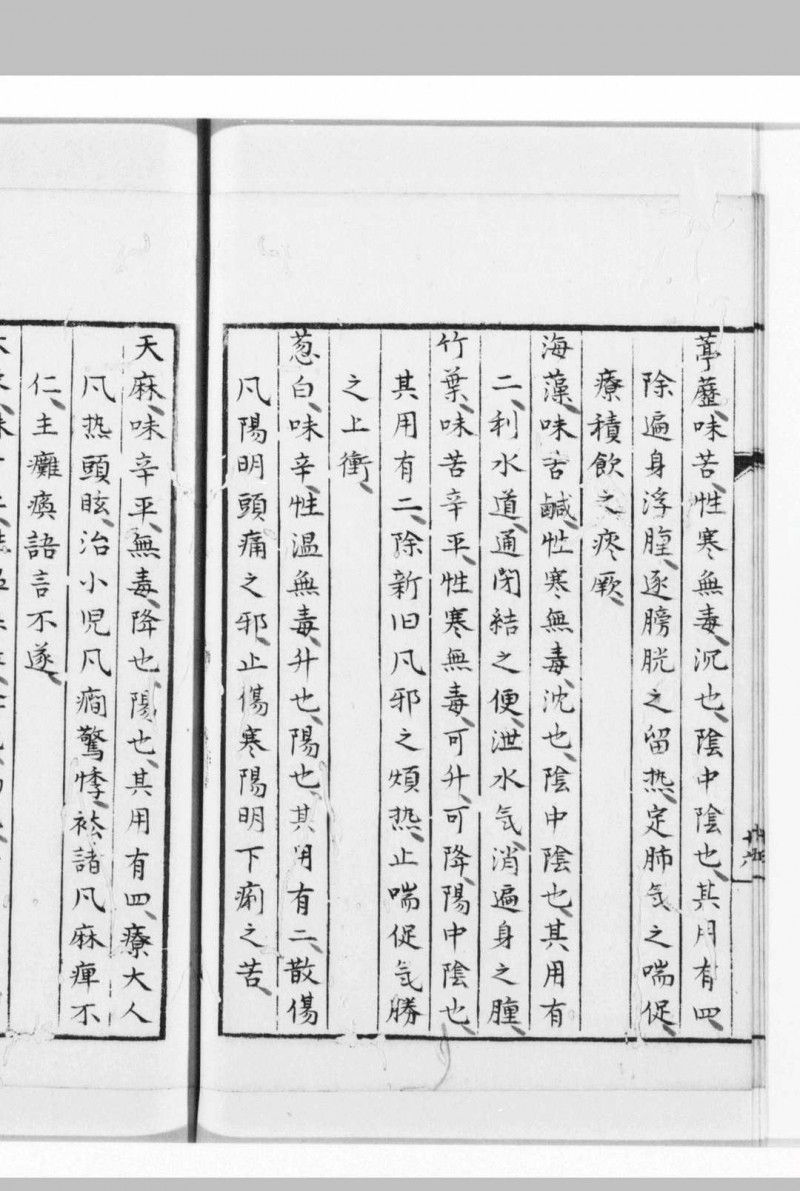 葶藶味苦性寒無毒沉也陰中陰也其用有四
除遍身浮腫逐膀胱之留热定肺氣之喘促
療積飲之痰厥
海藻味苦鹹性寒無毒沈也陰中陰也其用有
二利水道通閉結之便泄水気消遍身之腫
竹葉味苦辛平性寒無毒可升可降陽中陰也
其用有二除新旧凡邪之煩热止喘促気勝
之上衝
葱白味辛性温無毒升也陽也其用有二散傷
凡陽明頭痛之邪止傷寒陽明下痢之苦
天麻味辛平無毒降也陽也其用有四療大人
凡热頭眩治小児凡癇驚悸祛諸凡麻痺不
仁主癱瘓語言不遂